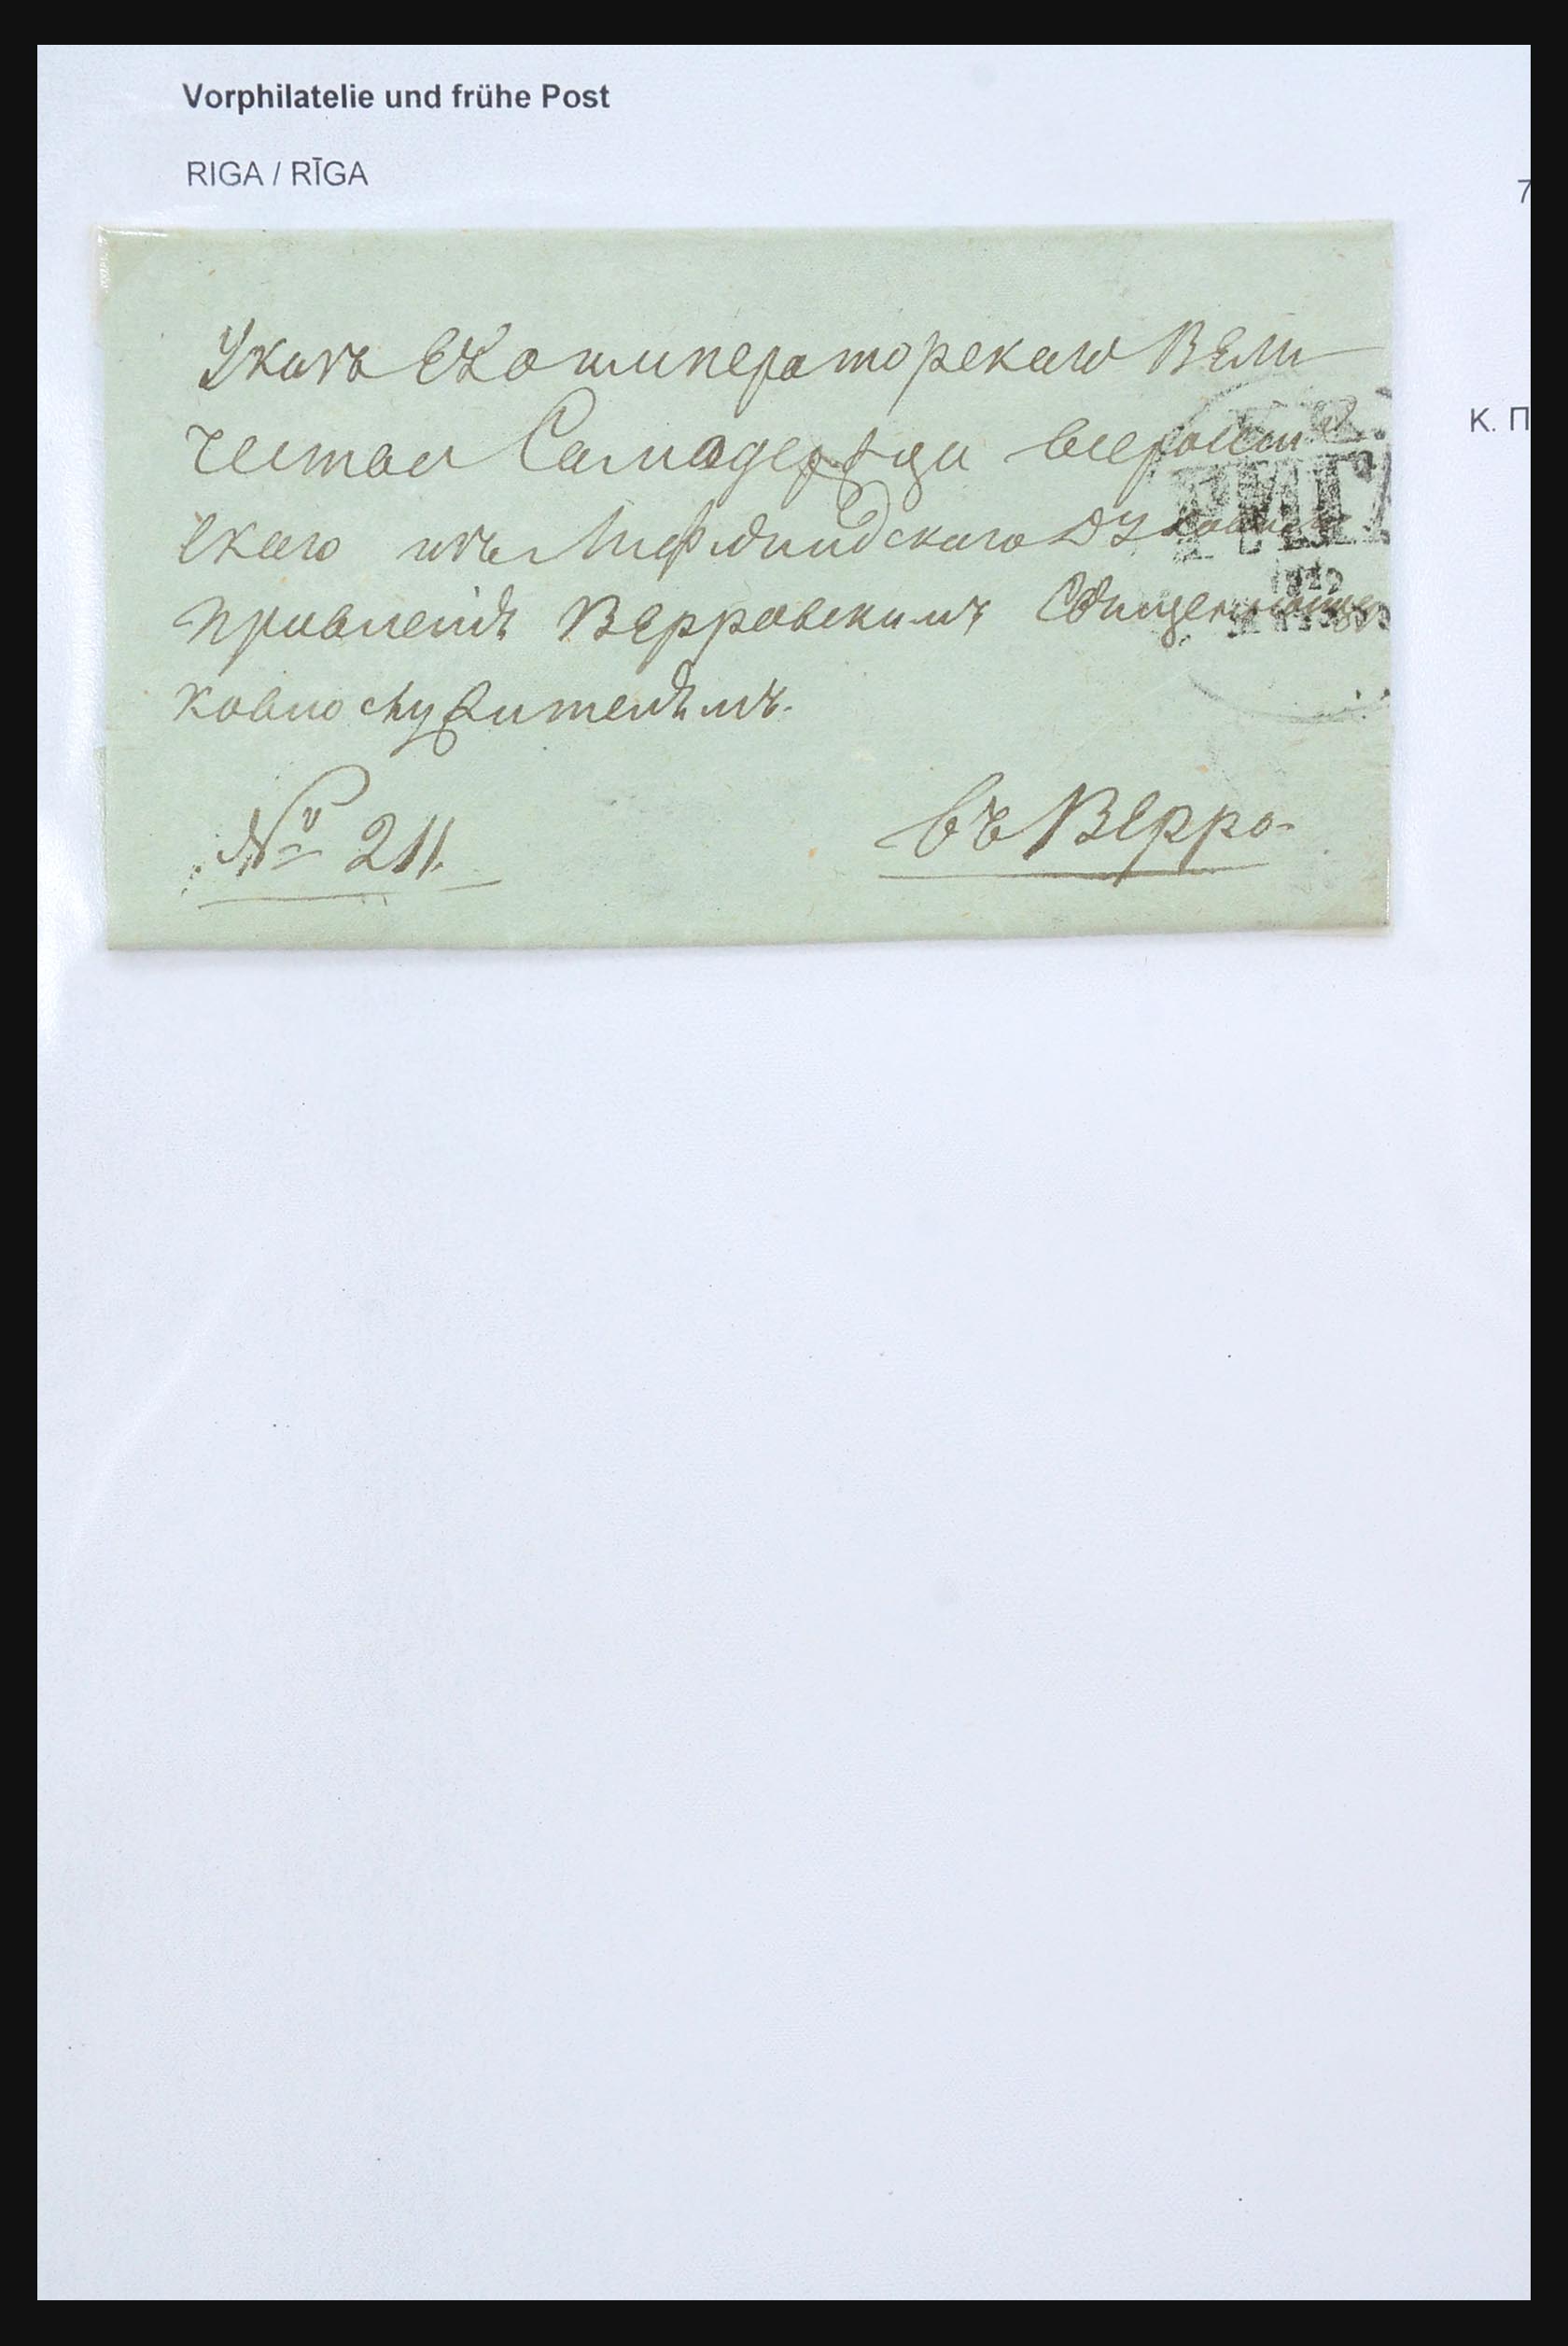 Vorphilatelie und frühe Post
RIGA / RĪGA
7
К. П
Указъ ЕГо императорскаго Вели
чества Самодержца всеросси
скаго изъ Лифляндскаго Духовнаго
правленія Верровскимъ Священноцер
ковнослужителямъ.
РИГА
№ 211.
въ Верро